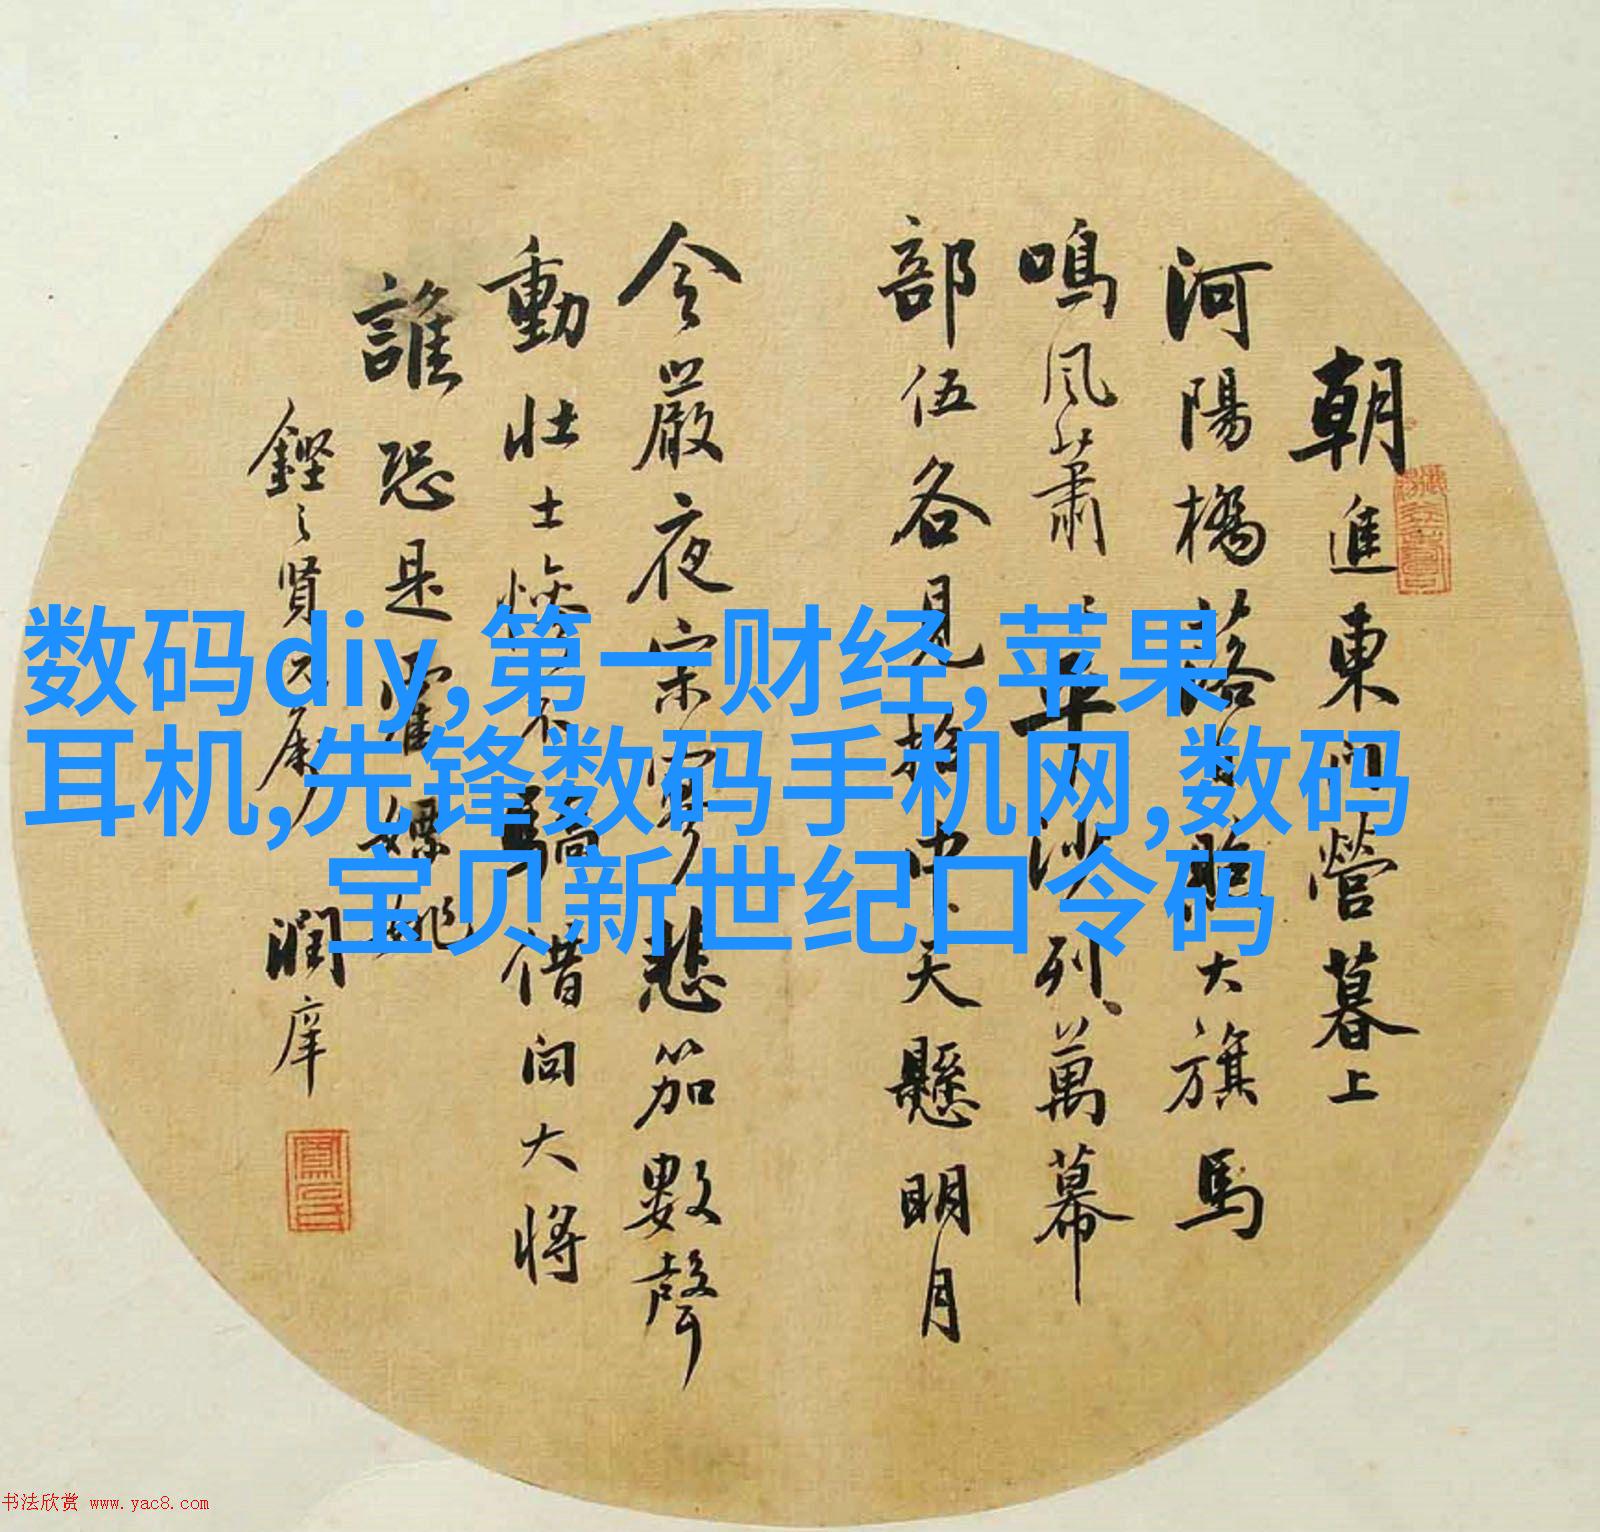 朝進東門營暮上
河陽橋落日照大旗馬
鳴風蕭〻平沙列萬幕
部伍各見招中天懸明月
令嚴夜寂寥悲笳數聲
動壯士慘不驕借问大將
誰恐是霍嫖姚
鏗之賢兄屬
潤庠
数码diy,第一财经,苹果
耳机,先锋数码手机网,数码
宝贝新世纪口令码
书法欣赏 www.yac8.com